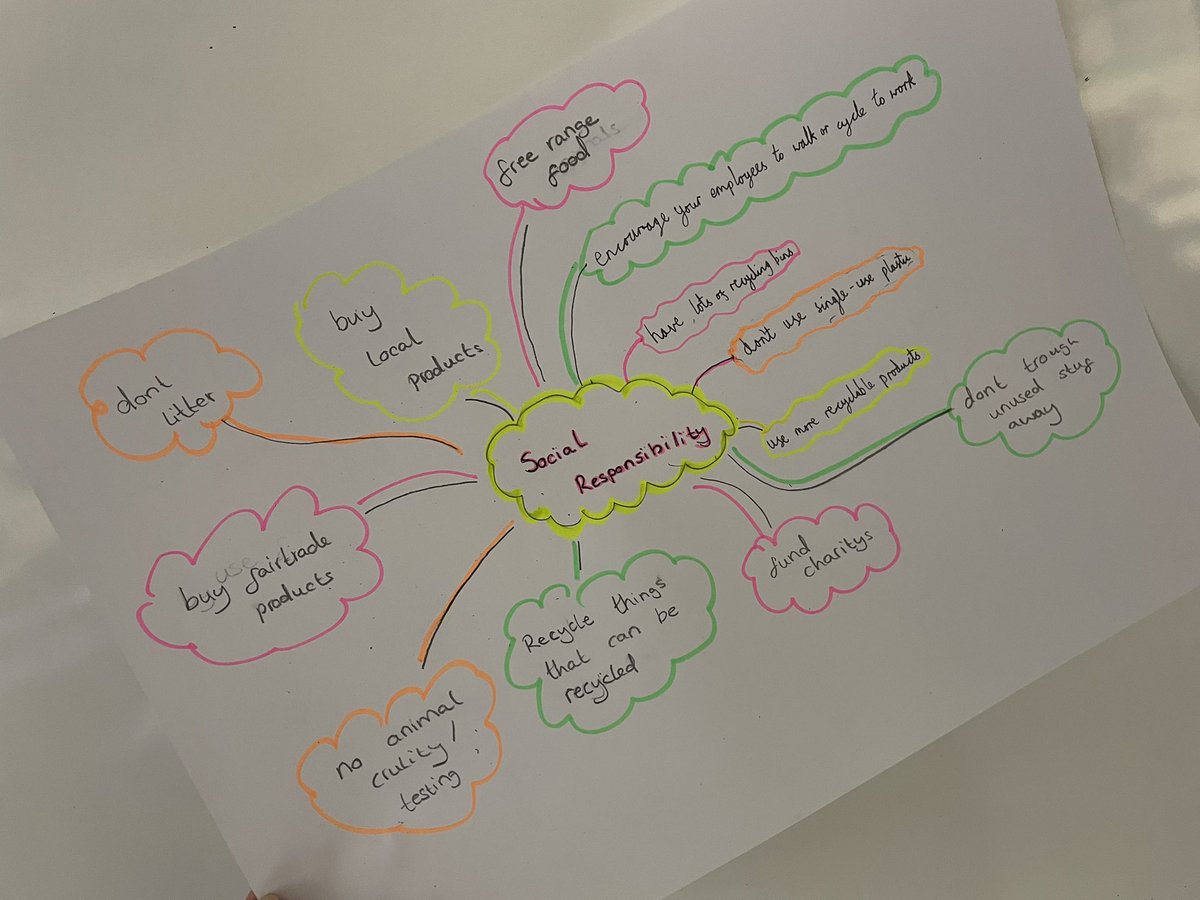 Social
Responsibility
free range
food
encourage your employees to walk or cycle to work
have lots of recycling bins
don't use single-use plastic
use more recyclable products
dont trough
unused stuf
away
fund
charitys
Recycle things
that can be
recycled
no animal
crulity/
testing
buy fairtrade
products
dont
litter
buy
local
products